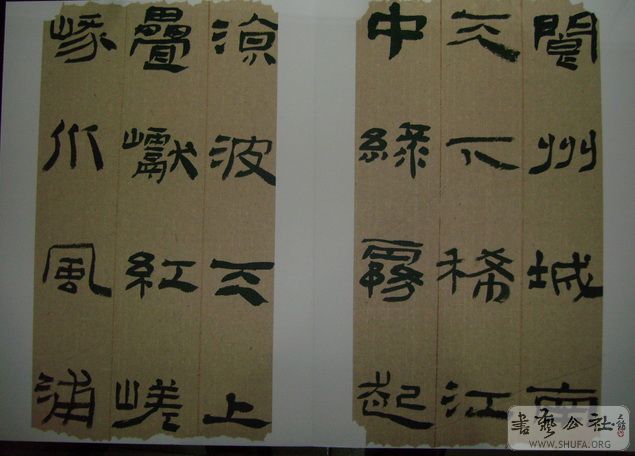 閬州城南
天下稀江
中綠霧起
涼波天上
疊巘紅嵯
峨水風浦
書藝公社
WWW.SHUFA.ORG